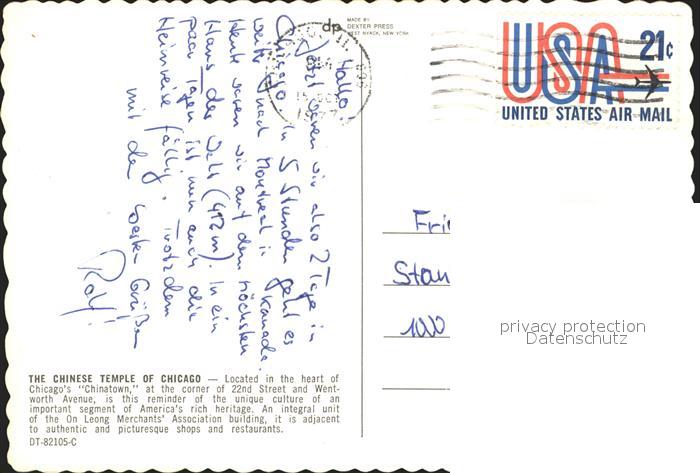 MADE BY
DEXTER PRESS
WEST NYACK, NEW YORK
dp
21¢
USA
UNITED STATES AIR MAIL
Hallo!
Jetzt waren wir also 2 Tage in
Chicago. In 5 Stunden geht es
weiter nach Montreal in Kanada.
Heute waren wir auf dem höchsten
Haus der Welt (442m). In ein
paar Tagen ist nun auch die
Heimreise fällig. Trotzdem
mit den besten Grüßen
Rolf!
Fri
Stan
1000
privacy protection
Datenschutz
THE CHINESE TEMPLE OF CHICAGO — Located in the heart of
Chicago's "Chinatown," at the corner of 22nd Street and Went-
worth Avenue, is this reminder of the unique culture of an
important segment of America's rich heritage. An integral unit
of the On Leong Merchants' Association building, it is adjacent
to authentic and picturesque shops and restaurants.
DT-82105-C